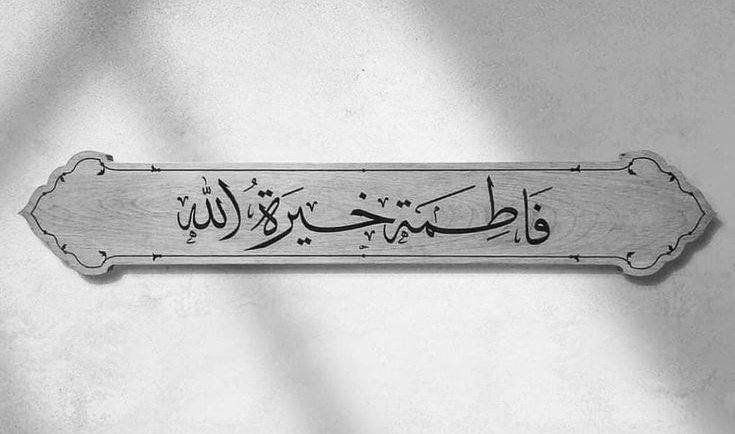 فَاطِمَة خَيرَةُ الله